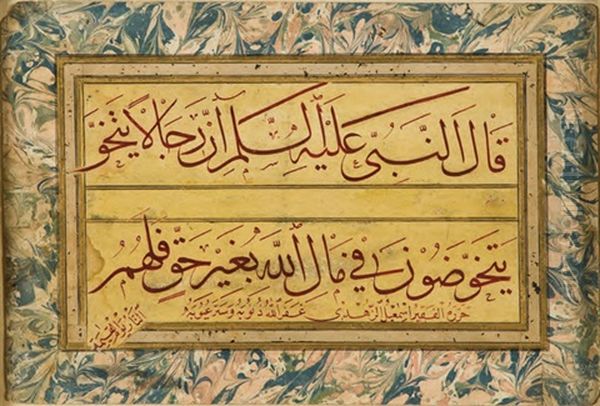 قَالَ النَّبِيُّ عَلَيْهِ السَّلَام إِنَّ رِجَالًا يَتَخَوَّ
يَتَخَوَّضُونَ فِي مَالِ اللَّهِ بِغَيْرِ حَقٍّ فَلَهُمُ
النَّارُ يَوْمَ الْقِيَمَةِ
حرره الفقير اسمعيل الزهدي غفر الله ذنوبه وستر عيوبه